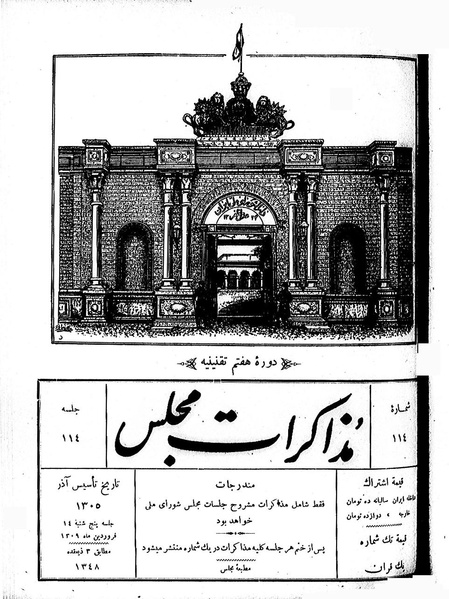 دورهٔ هفتم تقنینیه
شماره
۱۱۴
مذاکرات مجلس
جلسه
۱۱۴
قیمة اشتراك
داخله ایران سالیانه ده تومان
خارجه » دوازده تومان
قیمة تك شماره
یك قران
مندرجات
فقط شامل مذاکرات مشروح جلسات مجلس شورای ملی
خواهد بود
پس از ختم هر جلسه کلیه مذاکرات در یك شماره منتشر میشود
مطبعه مجلس
تاریخ تأسیس آذر
۱۳۰۵
جلسه پنج شنبه ۱۴
فروردین ماه ۱۳۰۹
مطابق ۳ ذیقعده
۱۳۴۸